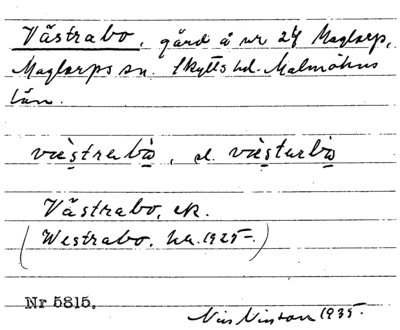 Västrabo, gård å nr 24 Maglarp,
Maglarps sn. Skytts hd. Malmöhus
län.
västrabo, el. västurbo
Västrabo, ek.
(Westrabo, hk. 1925–)
Nr 5815.
Nils Nilsson 1935.